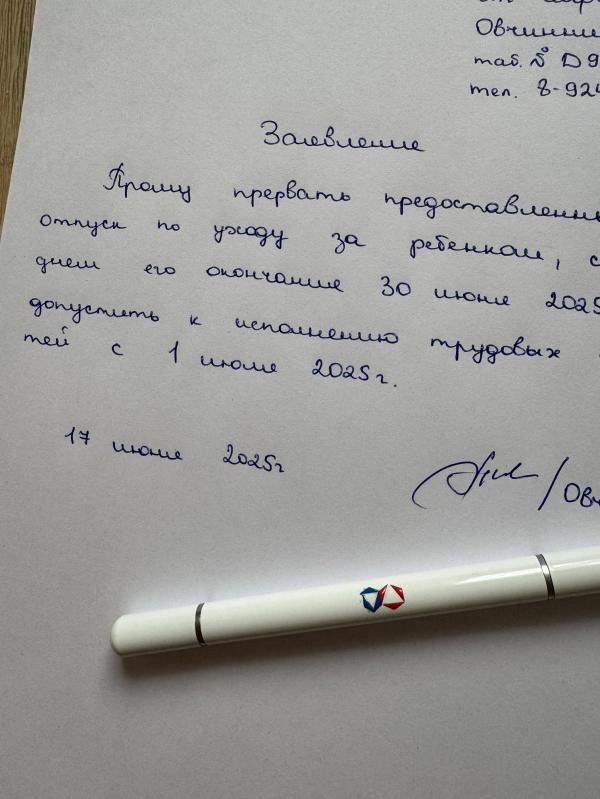 от
Овчинни
таб. № D9
тел. 8-924
Заявление
Прошу прервать предоставленны
отпуск по уходу за ребенком, с
днем его окончание 30 июня 2025
допустить к исполнению трудовых
тей с 1 июля 2025г.
17 июня 2025г
/Овч